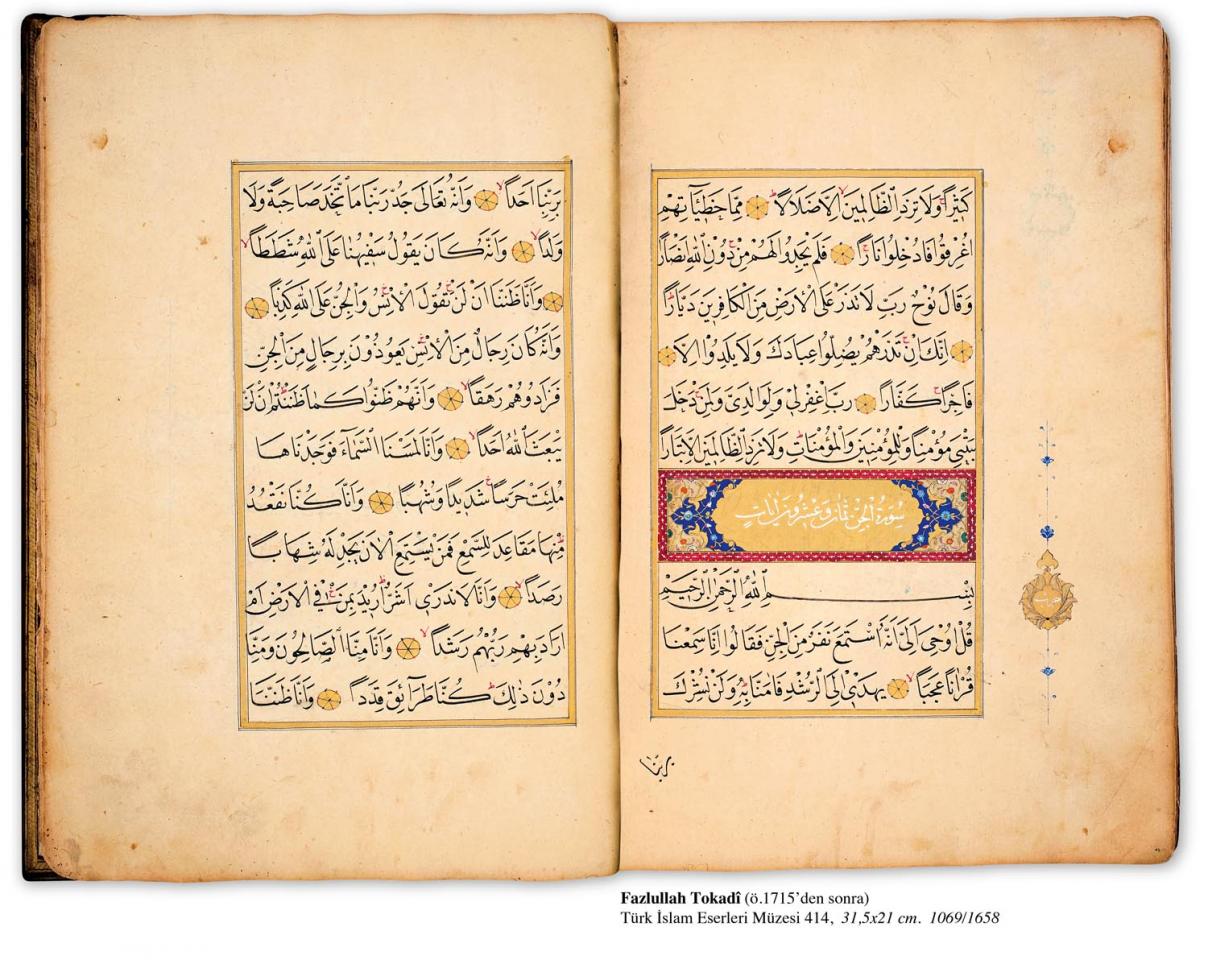 كَثِيرًا وَلَا تَزِدِ الظَّالِمِينَ اِلَّا ضَلَالًا مِمَّا خَطِيآتِهِمْ
اُغْرِقُوا فَاُدْخِلُوا نَارًا فَلَمْ يَجِدُوا لَهُمْ مِنْ دُونِ اللّٰهِ اَنْصَارًا
وَقَالَ نُوحٌ رَبِّ لَا تَذَرْ عَلَى الْاَرْضِ مِنَ الْكَافِرِينَ دَيَّارًا
اِنَّكَ اِنْ تَذَرْهُمْ يُضِلُّوا عِبَادَكَ وَلَا يَلِدُوا اِلَّا
فَاجِرًا كَفَّارًا رَبِّ اغْفِرْ لِي وَلِوَالِدَيَّ وَلِمَنْ دَخَلَ
بَيْتِيَ مُؤْمِنًا وَلِلْمُؤْمِنِينَ وَالْمُؤْمِنَاتِ وَلَا تَزِدِ الظَّالِمِينَ اِلَّا تَبَارًا
سُورَةُ الْجِنِّ ثَمَانٍ وَعِشْرُونَ اٰيَاتٍ
بِسْمِ اللّٰهِ الرَّحْمٰنِ الرَّحِيمِ
قُلْ اُوحِيَ اِلَيَّ اَنَّهُ اسْتَمَعَ نَفَرٌ مِنَ الْجِنِّ فَقَالُوا اِنَّا سَمِعْنَا
قُرْاٰنًا عَجَبًا يَهْدِي اِلَى الرُّشْدِ فَاٰمَنَّا بِهِ وَلَنْ نُشْرِكَ
بربنا
بِرَبِّنَا اَحَدًا وَاَنَّهُ تَعَالَى جَدُّ رَبِّنَا مَا اتَّخَذَ صَاحِبَةً وَلَا
وَلَدًا وَاَنَّهُ كَانَ يَقُولُ سَفِيهُنَا عَلَى اللّٰهِ شَطَطًا
وَاَنَّا ظَنَنَّا اَنْ لَنْ تَقُولَ الْاِنْسُ وَالْجِنُّ عَلَى اللّٰهِ كَذِبًا
وَاَنَّهُ كَانَ رِجَالٌ مِنَ الْاِنْسِ يَعُوذُونَ بِرِجَالٍ مِنَ الْجِنِّ
فَزَادُوهُمْ رَهَقًا وَاَنَّهُمْ ظَنُّوا كَمَا ظَنَنْتُمْ اَنْ لَنْ
يَبْعَثَ اللّٰهُ اَحَدًا وَاَنَّا لَمَسْنَا السَّمَاءَ فَوَجَدْنَاهَا
مُلِئَتْ حَرَسًا شَدِيدًا وَشُهُبًا وَاَنَّا كُنَّا نَقْعُدُ
مِنْهَا مَقَاعِدَ لِلسَّمْعِ فَمَنْ يَسْتَمِعِ الْاٰنَ يَجِدْ لَهُ شِهَابًا
رَصَدًا وَاَنَّا لَا نَدْرِي اَشَرٌّ اُرِيدَ بِمَنْ فِي الْاَرْضِ اَمْ
اَرَادَ بِهِمْ رَبُّهُمْ رَشَدًا وَاَنَّا مِنَّا الصَّالِحُونَ وَمِنَّا
دُونَ ذٰلِكَ كُنَّا طَرَائِقَ قِدَدًا وَاَنَّا ظَنَنَّا
Fazlullah Tokadî (ö.1715’den sonra)
Türk İslam Eserleri Müzesi 414, 31,5x21 cm. 1069/1658